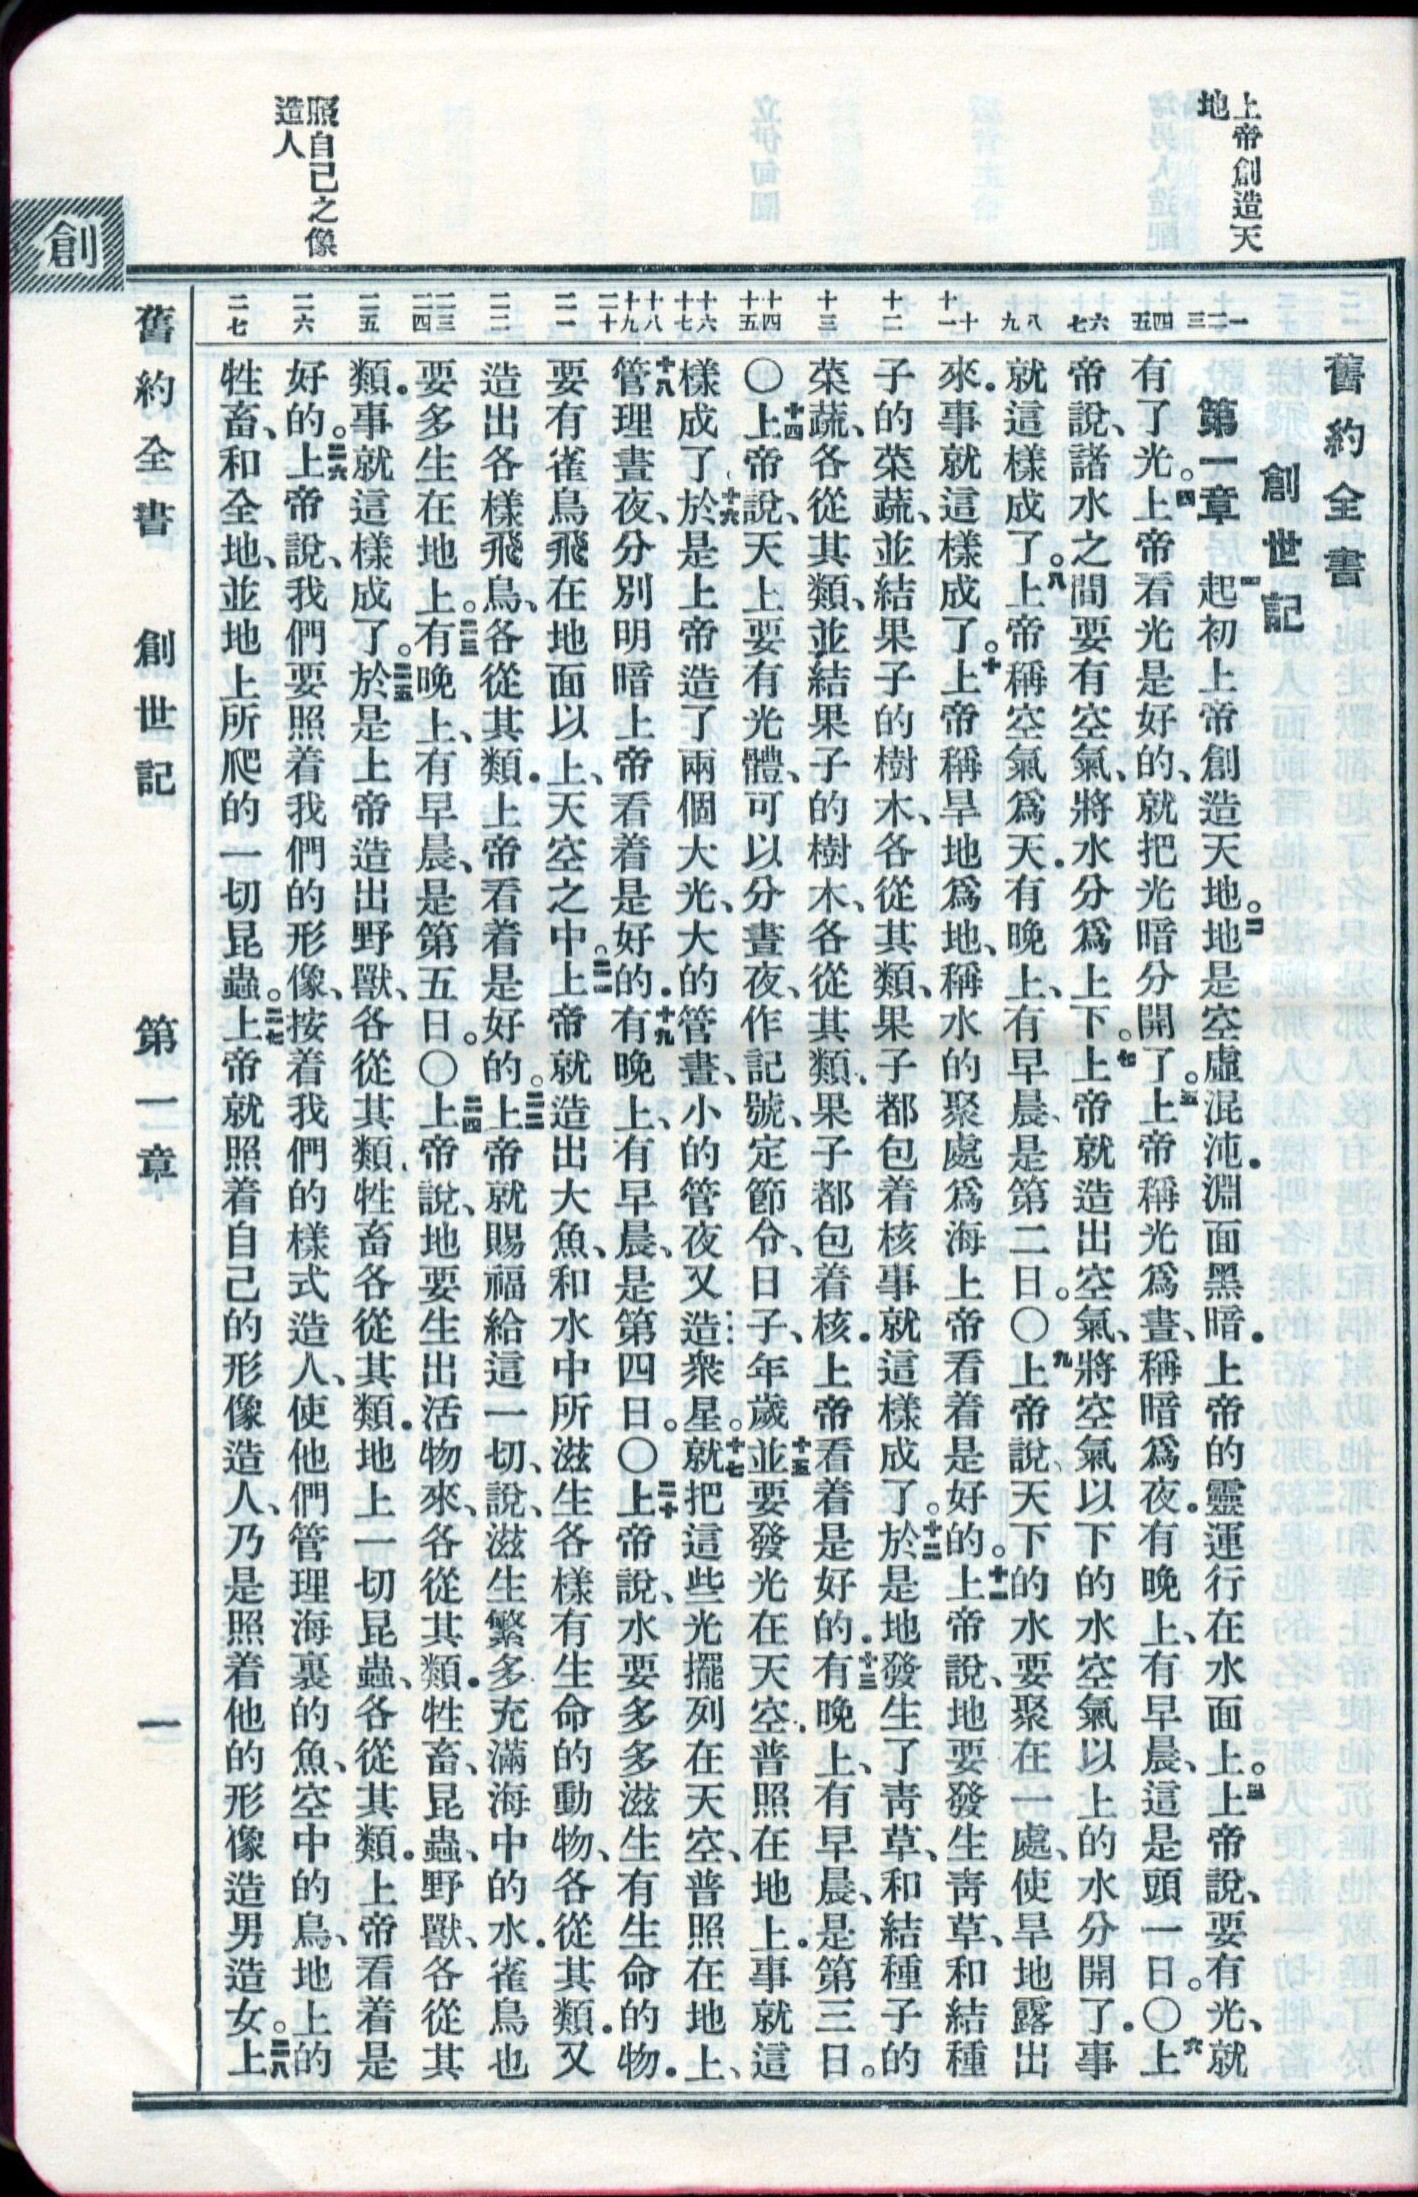 上帝創造天
地
照自己之像
造人
創
一 二 三 四 五 六 七 八 九 十 十一 十二 十三 十四 十五 十六 十七 十八 十九 二十 二一 二二 二三 二四 二五 二六 二七
舊約全書
創世記
第一章 一起初上帝創造天地。二地是空虛混沌．淵面黑暗．上帝的靈運行在水面上。三上帝說、要有光、就
有了光。四上帝看光是好的、就把光暗分開了。五上帝稱光爲晝、稱暗爲夜．有晚上、有早晨、這是頭一日。〇六上
帝說、諸水之間要有空氣、將水分爲上下。七上帝就造出空氣、將空氣以下的水空氣以上的水分開了．事
就這樣成了。八上帝稱空氣爲天．有晚上、有早晨、是第二日。〇九上帝說、天下的水要聚在一處、使旱地露出
來．事就這樣成了。十上帝稱旱地爲地、稱水的聚處爲海上帝看着是好的。十一上帝說、地要發生靑草、和結種
子的菜蔬、並結果子的樹木、各從其類、果子都包着核事就這樣成了。十二於是地發生了靑草、和結種子的
菜蔬、各從其類、並結果子的樹木、各從其類、果子都包着核．上帝看着是好的．十三有晚上、有早晨、是第三日。
〇十四上帝說、天上要有光體、可以分晝夜、作記號、定節令、日子、年歲十五並要發光在天空．普照在地上．事就這
樣成了十六於是上帝造了兩個大光、大的管晝、小的管夜又造衆星。十七就把這些光擺列在天空、普照在地上、
十八管理晝夜、分別明暗上帝看着是好的．十九有晚上、有早晨、是第四日。〇二十上帝說、水要多多滋生有生命的物．
要有雀鳥飛在地面以上、天空之中。二一上帝就造出大魚、和水中所滋生各樣有生命的動物、各從其類．又
造出各樣飛鳥、各從其類．上帝看着是好的。二二上帝就賜福給這一切、說、滋生繁多充滿海中的水．雀鳥也
要多生在地上。二三有晚上、有早晨、是第五日。〇二四上帝說、地要生出活物來、各從其類．牲畜、昆蟲、野獸、各從其
類．事就這樣成了。二五於是上帝造出野獸、各從其類．牲畜各從其類．地上一切昆蟲、各從其類．上帝看着是
好的。二六上帝說、我們要照着我們的形像、按着我們的樣式造人、使他們管理海裏的魚、空中的鳥、地上的
牲畜、和全地、並地上所爬的一切昆蟲。二七上帝就照着自己的形像造人、乃是照着他的形像造男造女。二八上
舊約全書 創世記 第一章 一